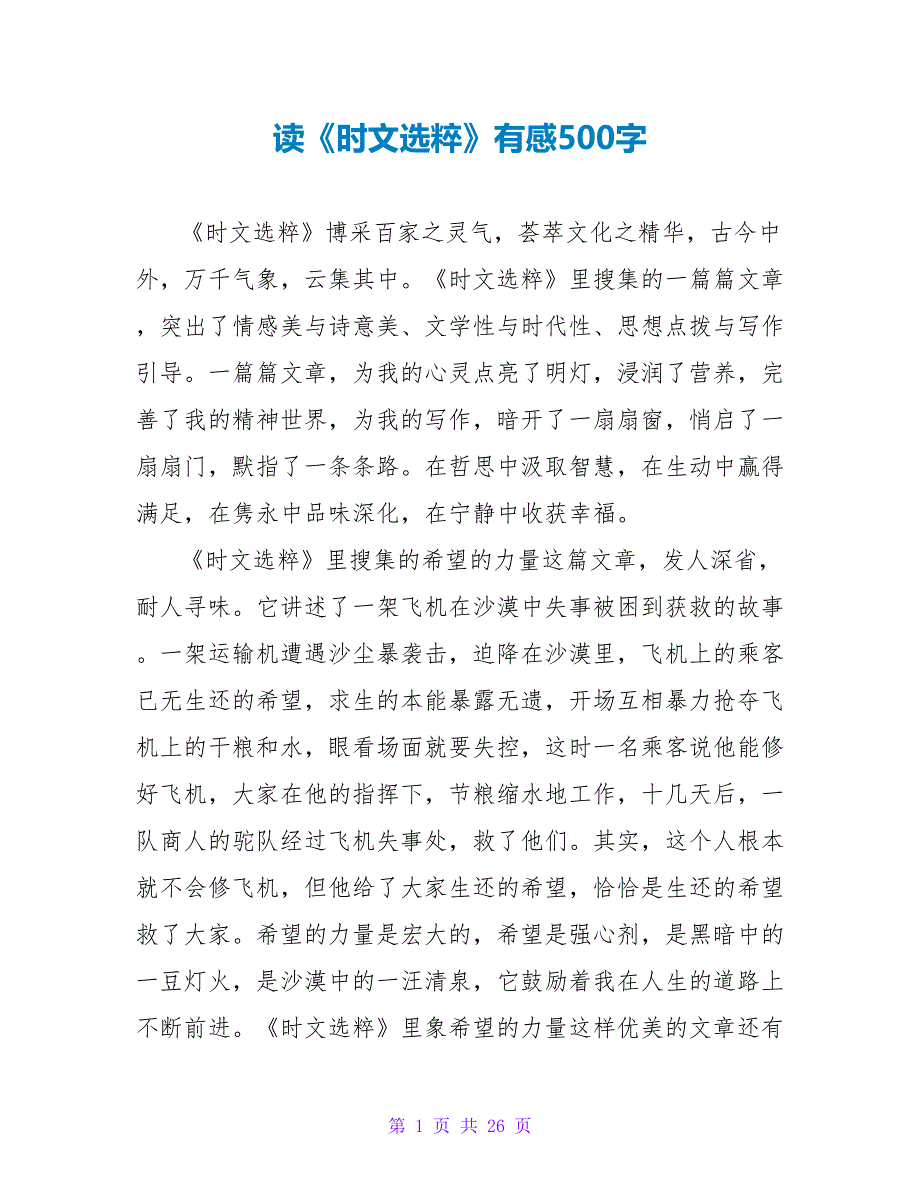 读《时文选粹》有感500字
《时文选粹》博采百家之灵气，荟萃文化之精华，古今中
外，万千气象，云集其中。《时文选粹》里搜集的一篇篇文章
，突出了情感美与诗意美、文学性与时代性、思想点拨与写作
引导。一篇篇文章，为我的心灵点亮了明灯，浸润了营养，完
善了我的精神世界，为我的写作，暗开了一扇扇窗，悄启了一
扇扇门，默指了一条条路。在哲思中汲取智慧，在生动中赢得
满足，在隽永中品味深化，在宁静中收获幸福。
《时文选粹》里搜集的希望的力量这篇文章，发人深省，
耐人寻味。它讲述了一架飞机在沙漠中失事被困到获救的故事
。一架运输机遭遇沙尘暴袭击，迫降在沙漠里，飞机上的乘客
已无生还的希望，求生的本能暴露无遗，开场互相暴力抢夺飞
机上的干粮和水，眼看场面就要失控，这时一名乘客说他能修
好飞机，大家在他的指挥下，节粮缩水地工作，十几天后，一
队商人的驼队经过飞机失事处，救了他们。其实，这个人根本
就不会修飞机，但他给了大家生还的希望，恰恰是生还的希望
救了大家。希望的力量是宏大的，希望是强心剂，是黑暗中的
一豆灯火，是沙漠中的一汪清泉，它鼓励着我在人生的道路上
不断前进。《时文选粹》里象希望的力量这样优美的文章还有
第 1 页 共 26 页